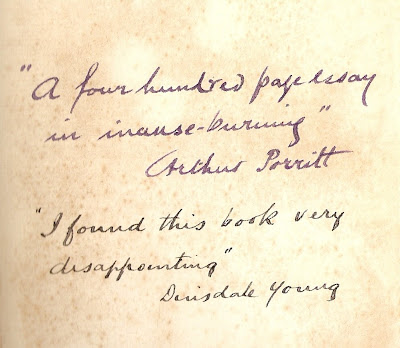 "A four hundred page essay
in incense-burning"
Arthur Porritt
"I found this book very
disappointing"
Dinsdale Young